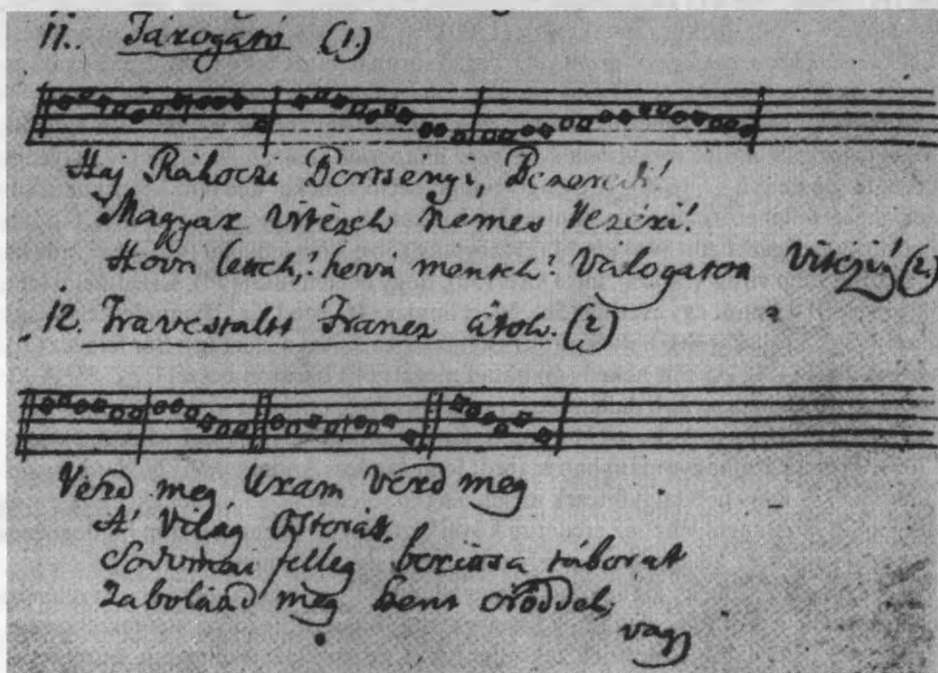 11. Tárogató (1.)
Haj Rákoczi Bertsenyi, Bezerédi!
Magyar vitézek nemes Vezéri!
Hova lettek,? hová mentek? Válogatott Vitézi! (2.)
12. Travestaltt Francz átok. (2)
Verd meg Uram verd meg
A' Világ Ostorát.
Sodomai felleg boritsa táborát
Zabolázd meg Szent erőddel,
vagy